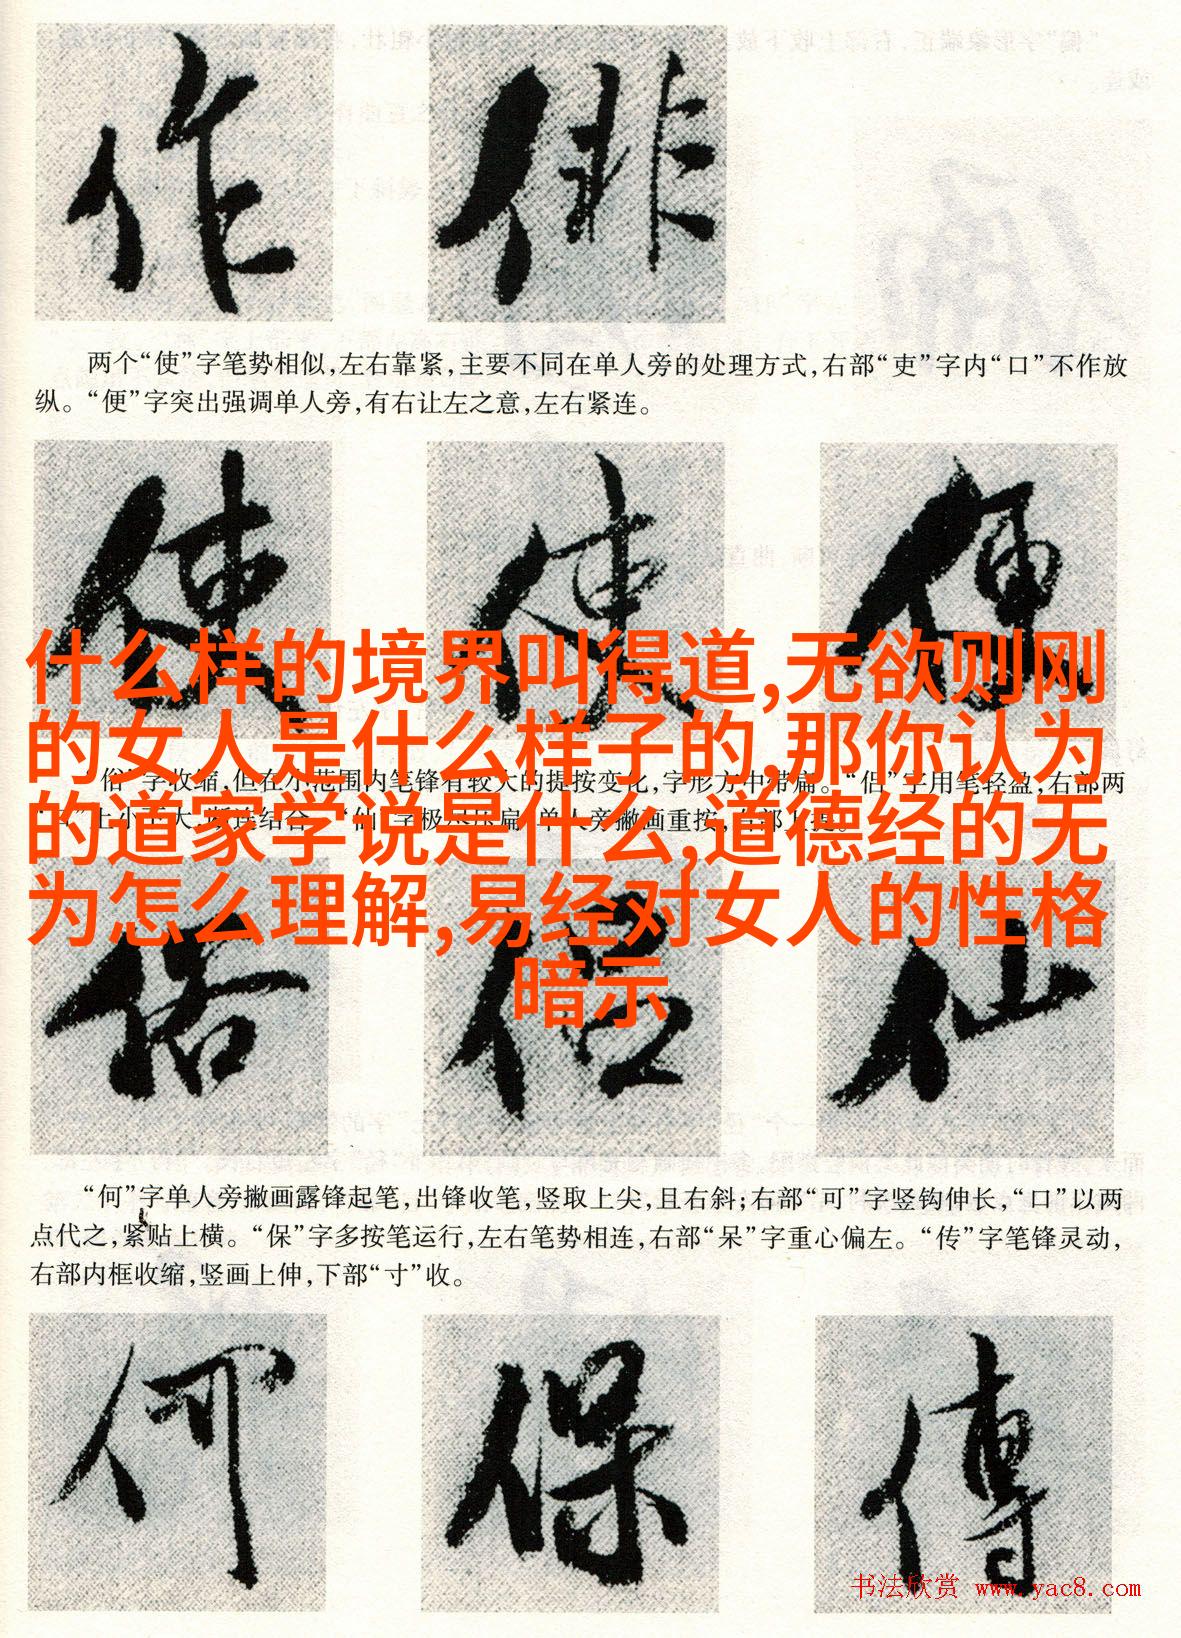 作 俳
两个“使”字笔势相似,左右靠紧,主要不同在单人旁的处理方式,右部“吏”字内“口”不作放
纵。“便”字突出强调单人旁,有右让左之意,左右紧连。
使 使 便
什么样的境界叫得道,无欲则刚
的女人是什么样子的,那你认为
的道家学说是什么,道德经的无
为怎么理解,易经对女人的性格
暗示
“俗”字收缩,但在小范围内笔锋有较大的提按变化,字形方中带扁。“侣”字用笔轻盈,右部两
上小下大,断连结合。“仙”字极尽压扁,单人旁撇画重按,右部上提。
俗 侣 仙
“何”字单人旁撇画露锋起笔,出锋收笔,竖取上尖,且右斜;右部“可”字竖钩伸长,“口”以两
点代之,紧贴上横。“保”字多按笔运行,左右笔势相连,右部“呆”字重心偏左。“传”字笔锋灵动,
右部内框收缩,竖画上伸,下部“寸”收。
何 保 傳
书法欣赏 www.yac8.com